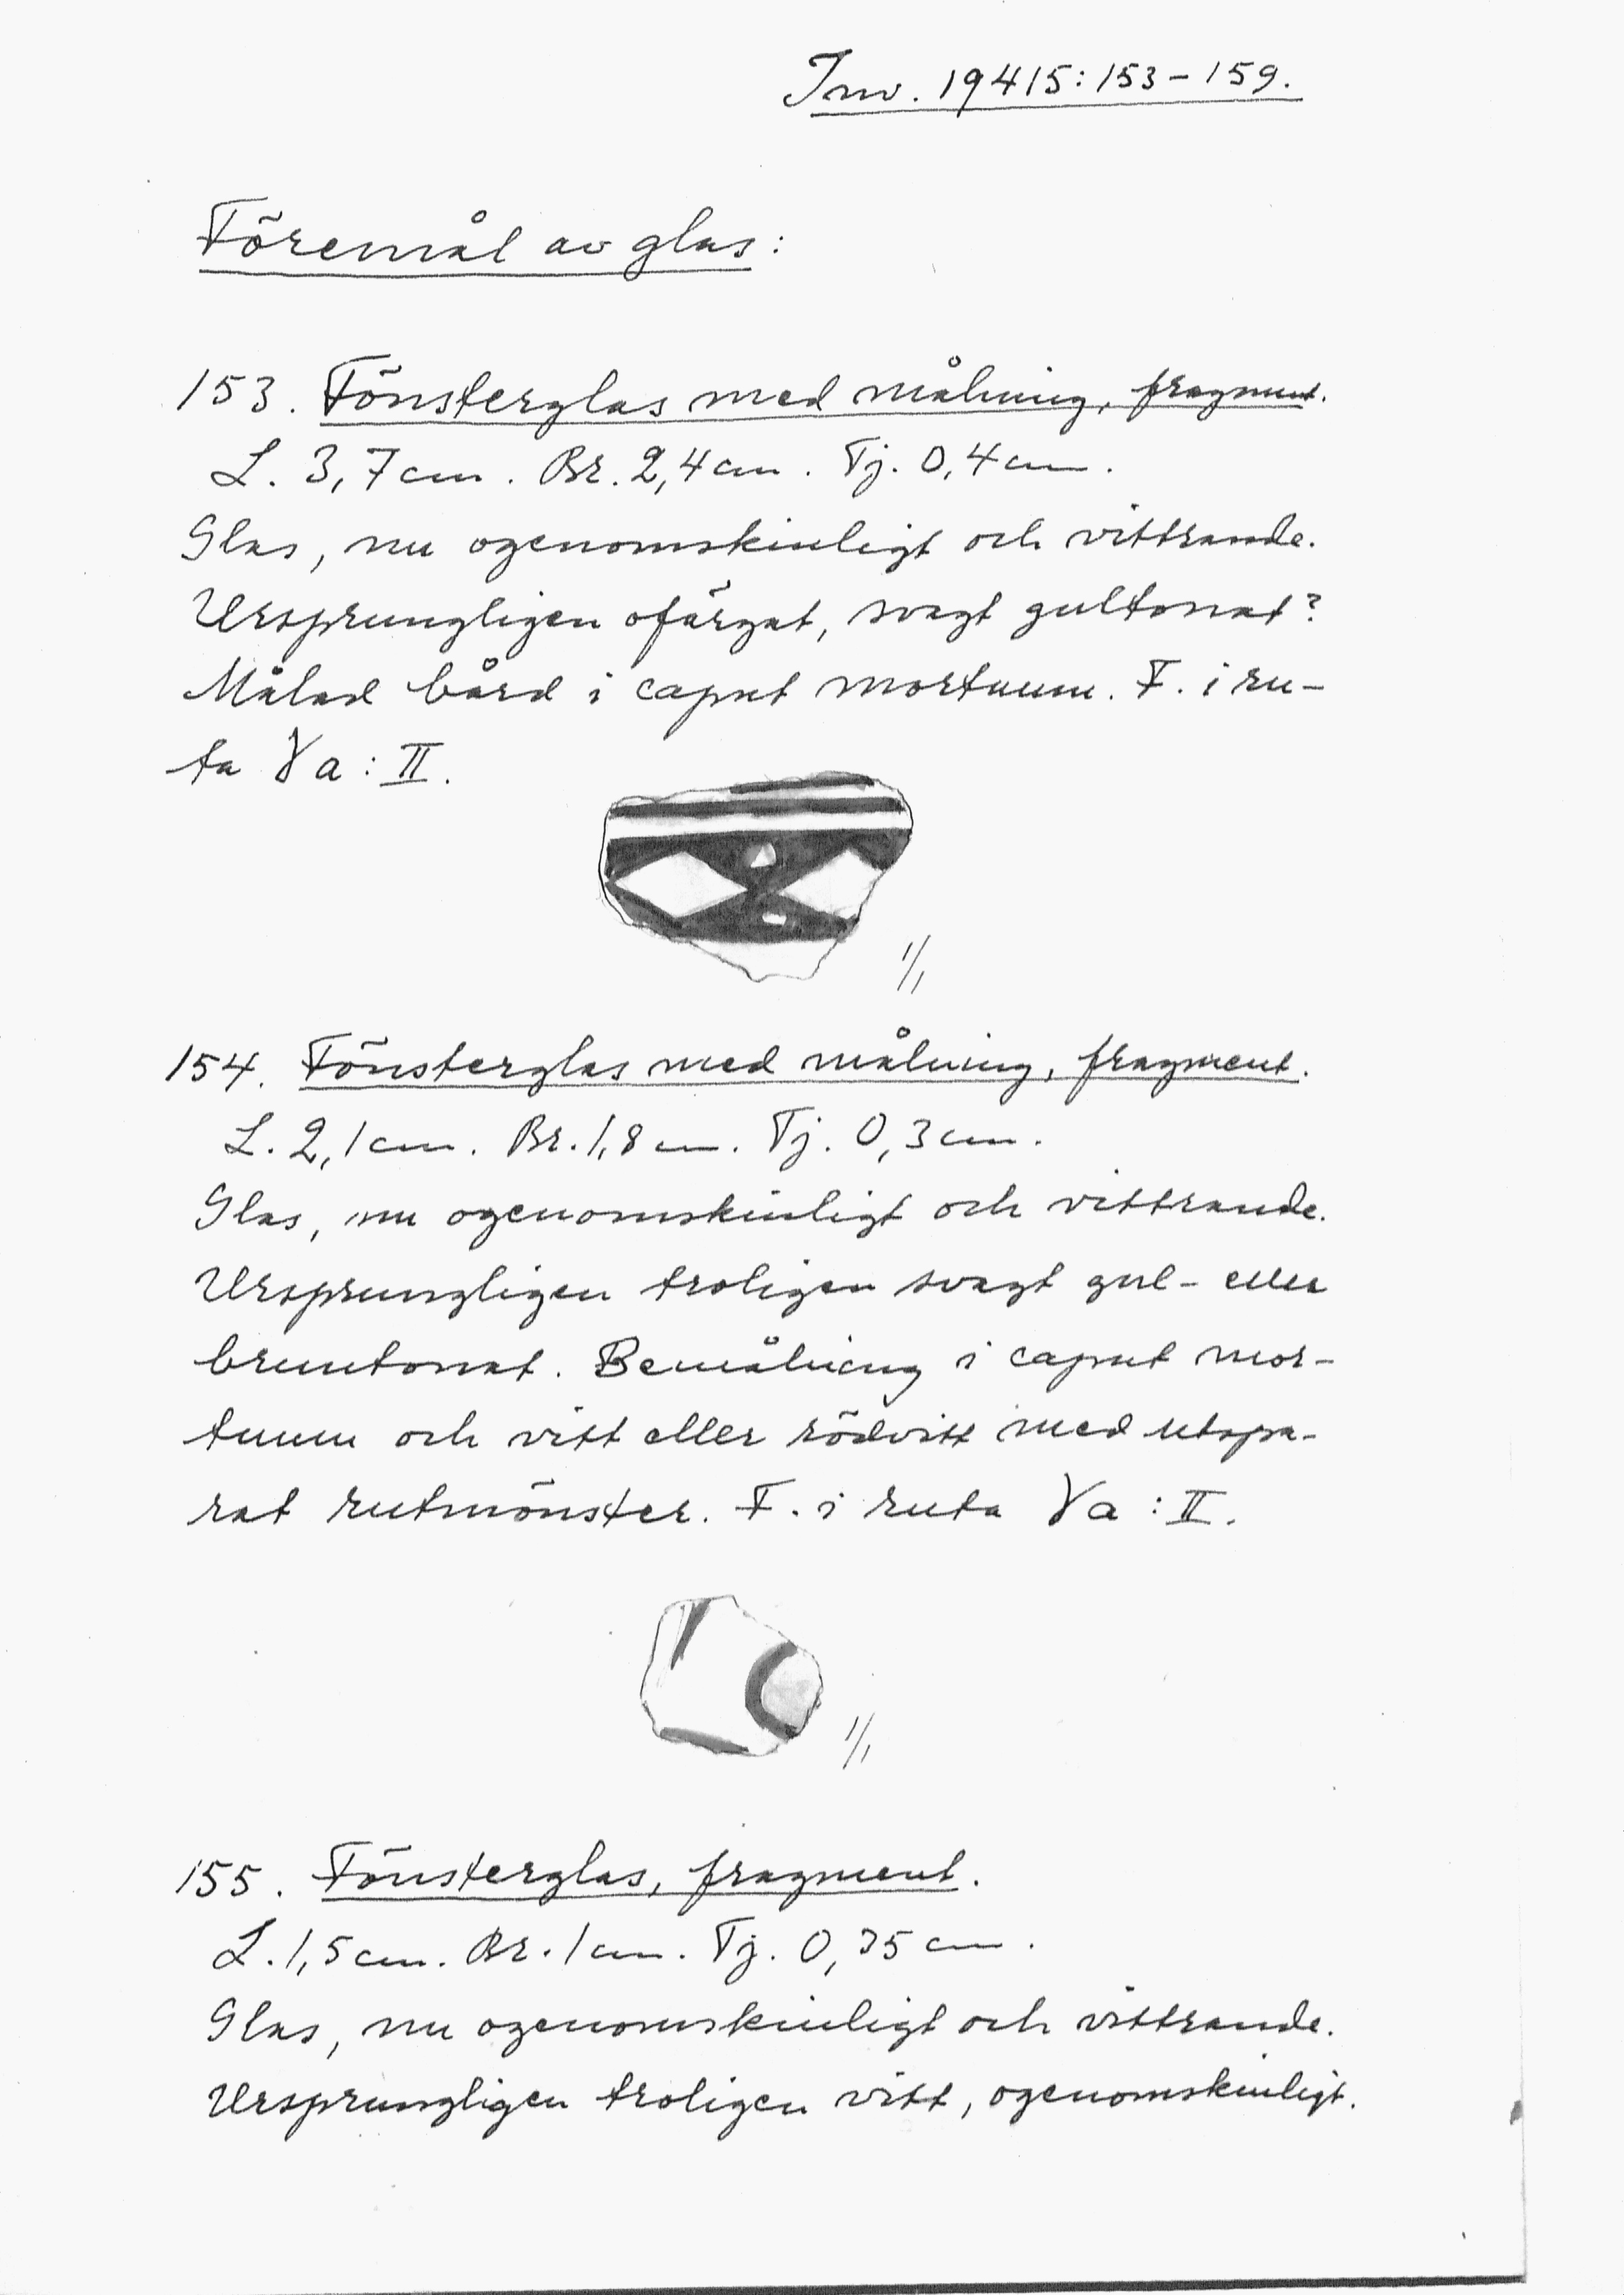 Inv. 19415:153-159.
Föremål av glas:
153. Fönsterglas med målning, fragment.
L. 3,7 cm. Br. 2,4 cm. Tj. 0,4 cm.
Glas, nu ogenomskinligt och vittrande.
Ursprungligen ofärgat, svagt gultonat?
Målad bård i caput mortuum. F. i ru-
ta γa: II.
1/1
154. Fönsterglas med målning, fragment.
L. 2,1 cm. Br. 1,8 cm. Tj. 0,3 cm.
Glas, nu ogenomskinligt och vittrande.
Ursprungligen troligen svagt gul- eller
bruntonat. Bemålning i caput mor-
tuum och vitt eller rödvitt med utspa-
rat rutmönster. F. i ruta γa: II.
1/1
155. Fönsterglas, fragment.
L. 1,5 cm. Br. 1 cm. Tj. 0,35 cm.
Glas, nu ogenomskinligt och vittrande.
Ursprungligen troligen vitt, ogenomskinligt.